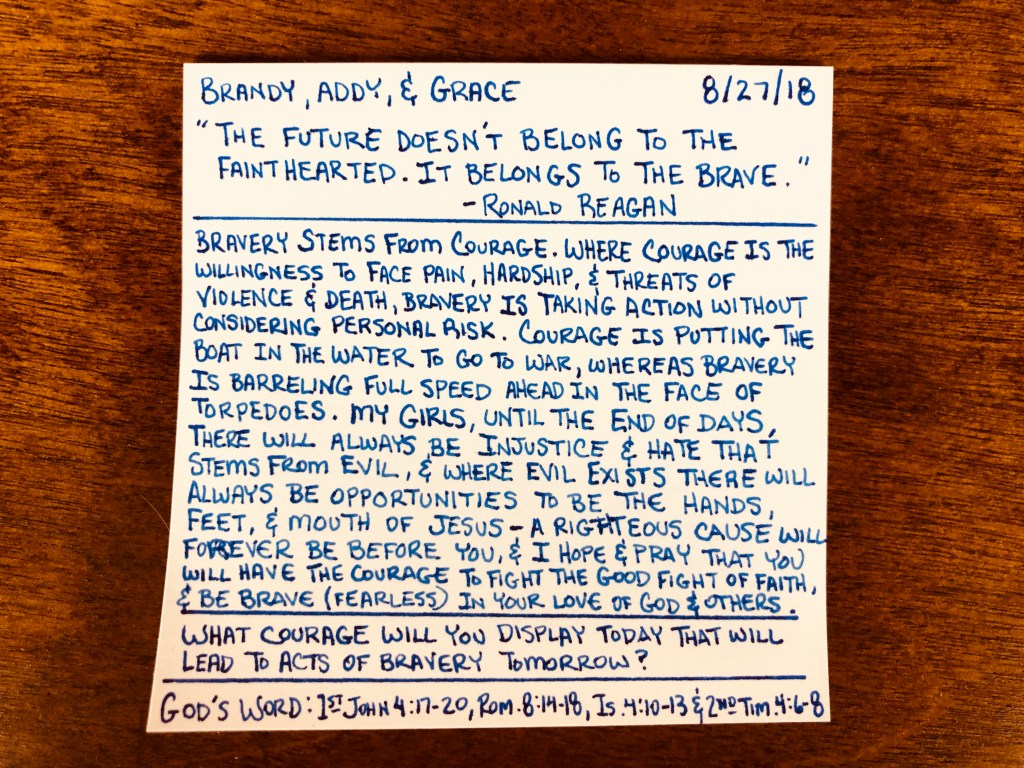 BRANDY, ADDY, & GRACE 8/27/18
"THE FUTURE DOESN'T BELONG TO THE
FAINTHEARTED. IT BELONGS TO THE BRAVE."
-RONALD REAGAN
BRAVERY STEMS FROM COURAGE. WHERE COURAGE IS THE
WILLINGNESS TO FACE PAIN, HARDSHIP, & THREATS OF
VIOLENCE & DEATH, BRAVERY IS TAKING ACTION WITHOUT
CONSIDERING PERSONAL RISK. COURAGE IS PUTTING THE
BOAT IN THE WATER TO GO TO WAR, WHEREAS BRAVERY
IS BARRELING FULL SPEED AHEAD IN THE FACE OF
TORPEDOES. MY GIRLS, UNTIL THE END OF DAYS,
THERE WILL ALWAYS BE INJUSTICE & HATE THAT
STEMS FROM EVIL, & WHERE EVIL EXISTS THERE WILL
ALWAYS BE OPPORTUNITIES TO BE THE HANDS,
FEET, & MOUTH OF JESUS - A RIGHTEOUS CAUSE WILL
FOREVER BE BEFORE YOU, & I HOPE & PRAY THAT YOU
WILL HAVE THE COURAGE TO FIGHT THE GOOD FIGHT OF FAITH,
& BE BRAVE (FEARLESS) IN YOUR LOVE OF GOD & OTHERS.
WHAT COURAGE WILL YOU DISPLAY TODAY THAT WILL
LEAD TO ACTS OF BRAVERY TOMORROW?
GOD'S WORD: 1ST JOHN 4:17-20, ROM. 8:14-18, IS. 4:10-13 & 2ND TIM. 4:6-8